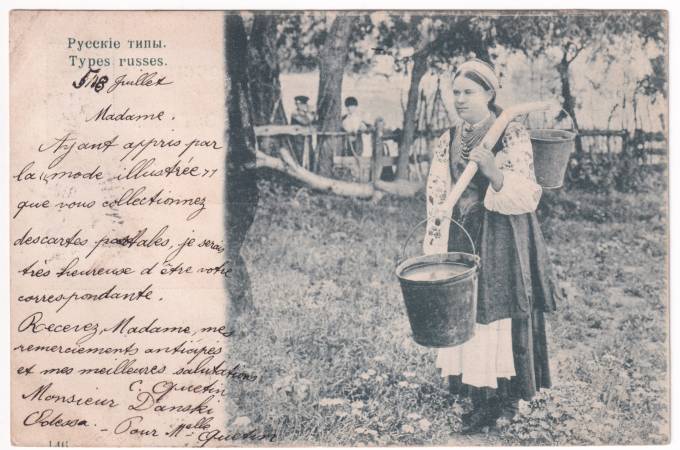 Русскіе типы.
Types russes.
5/18 Juillet
Madame.
Ayant appris par
la "mode illustrée"
que vous collectionnez
des cartes postales, je serais
très heureuse d'être votre
correspondante.
Recevez, Madame, mes
remerciements anticipés
et mes meilleures salutations
C. Quetin
Monsieur Danski
Odessa. - Pour Melle Quetin
146